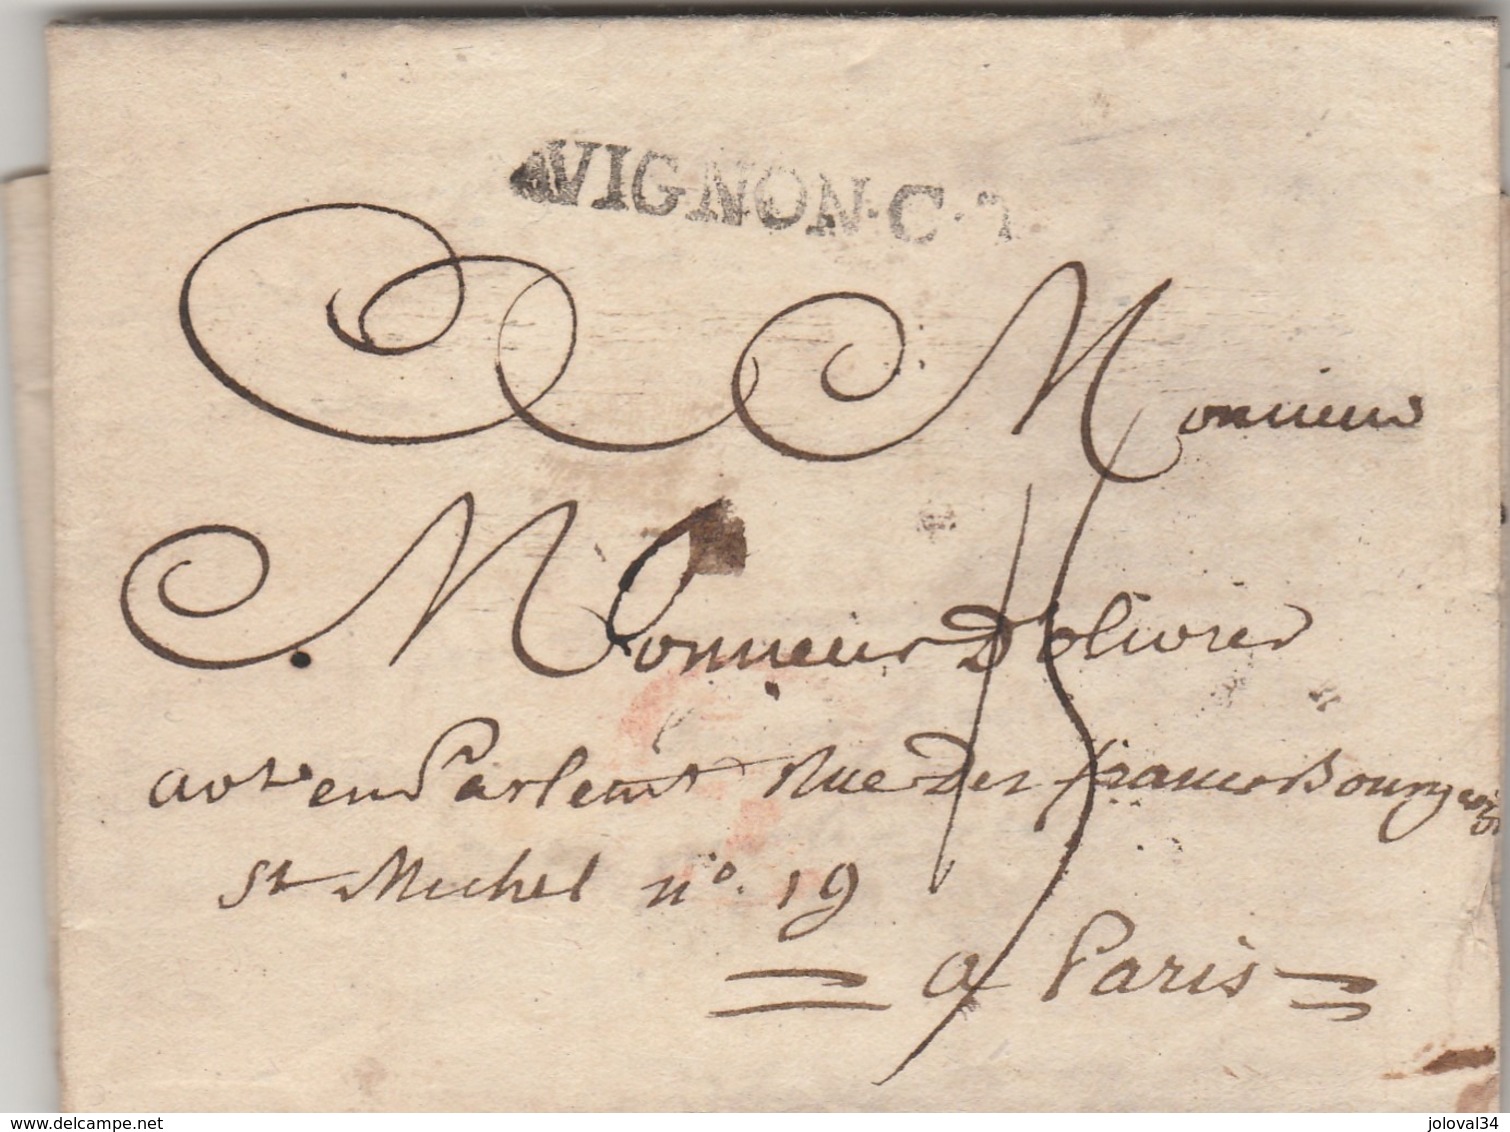 AVIGNON·C·
Monsieur
Monsieur D'olivier
avt en Parlemt Rue Des francs Bourgeois
St Michel n°. 19
a Paris
15
© www.delcampe.net
joloval34